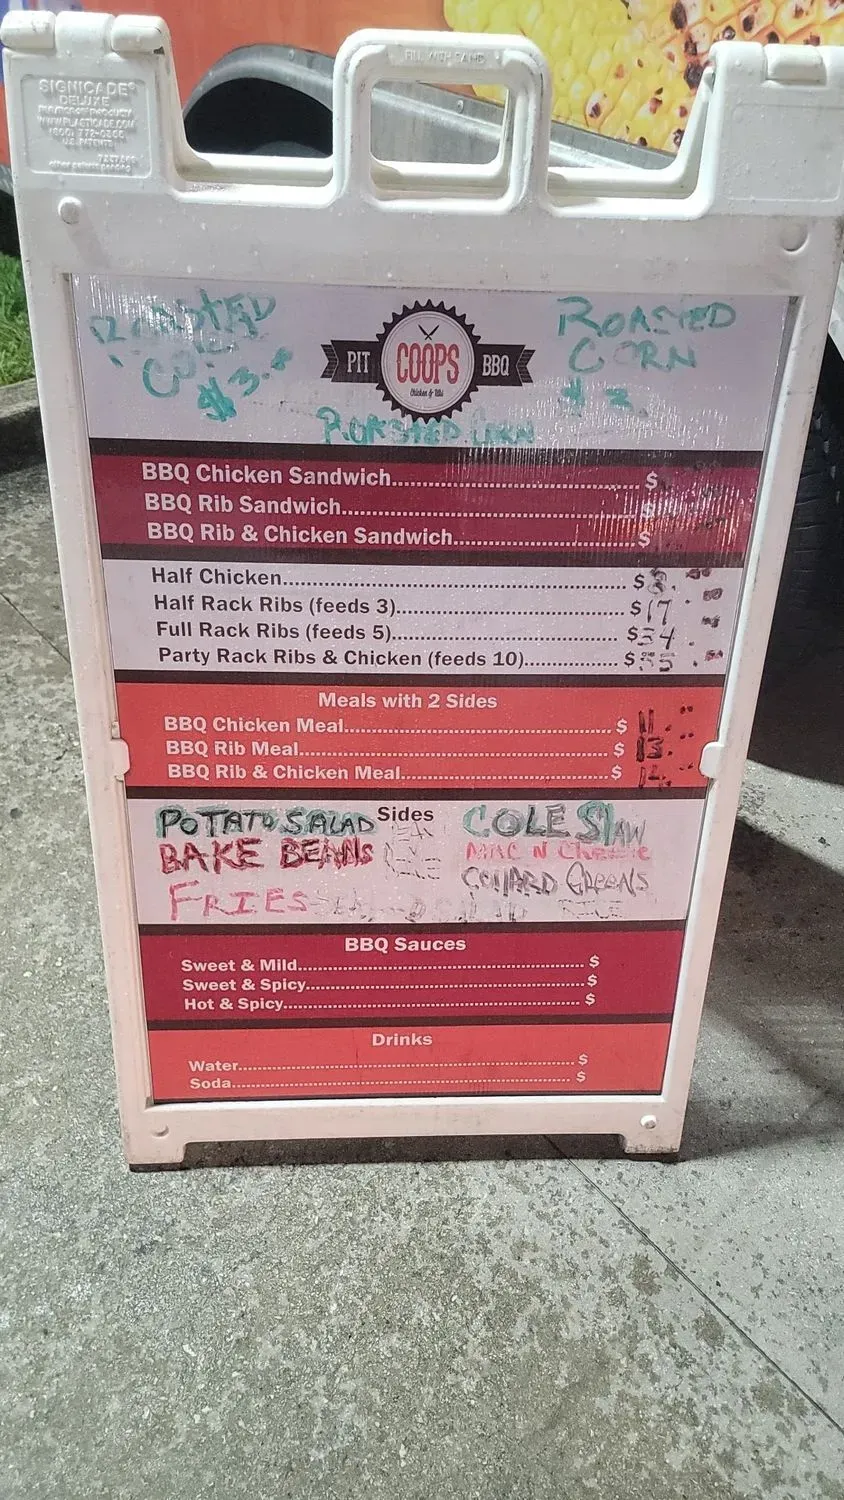 SIGNICADE®
DELUXE
WWW.PLASTICADE.COM
(800) 772-0355
U.S. PATENTS
other patents pending
FILL WITH SAND
ROASTED
$3.
ROASTED
CORN
$3.
PIT COOPS BBQ
Chicken & Ribs
ROASTED CORN
BBQ Chicken Sandwich $
BBQ Rib Sandwich $
BBQ Rib & Chicken Sandwich $
Half Chicken $8.
Half Rack Ribs (feeds 3) $17.
Full Rack Ribs (feeds 5) $34.
Party Rack Ribs & Chicken (feeds 10) $55.
Meals with 2 Sides
BBQ Chicken Meal $11.
BBQ Rib Meal $13.
BBQ Rib & Chicken Meal $
Sides
POTATO SALAD
COLE SlAW
BAKE BEANS
MAC N Cheese
COllARD GREENS
FRIES
BBQ Sauces
Sweet & Mild $
Sweet & Spicy $
Hot & Spicy $
Drinks
Water $
Soda $